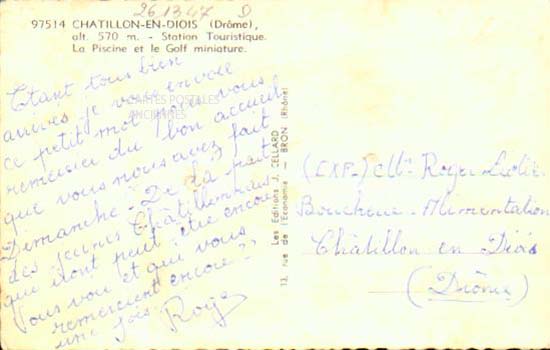 261347 D
97514 CHATILLON-EN-DIOIS (Drôme),
alt. 570 m. - Station Touristique.
La Piscine et le Golf miniature.
Etant tous bien
arrivés je vous envoie
ce petit mot pour vous
remercier du bon accueil
que vous nous avez fait
Dimanche. De la part
des jeunes Châtillonnais
que iront peut être encore
vous voir et qui vous
remercient encore
une fois Roger
CARTES POSTALES
ANCIENNES
Les Editions J. CELLARD
13, rue de l'Economie - BRON (Rhône)
(EXP.) Mr Roger
Boucherie - Alimentation
Châtillon en Diois
(Drôme)